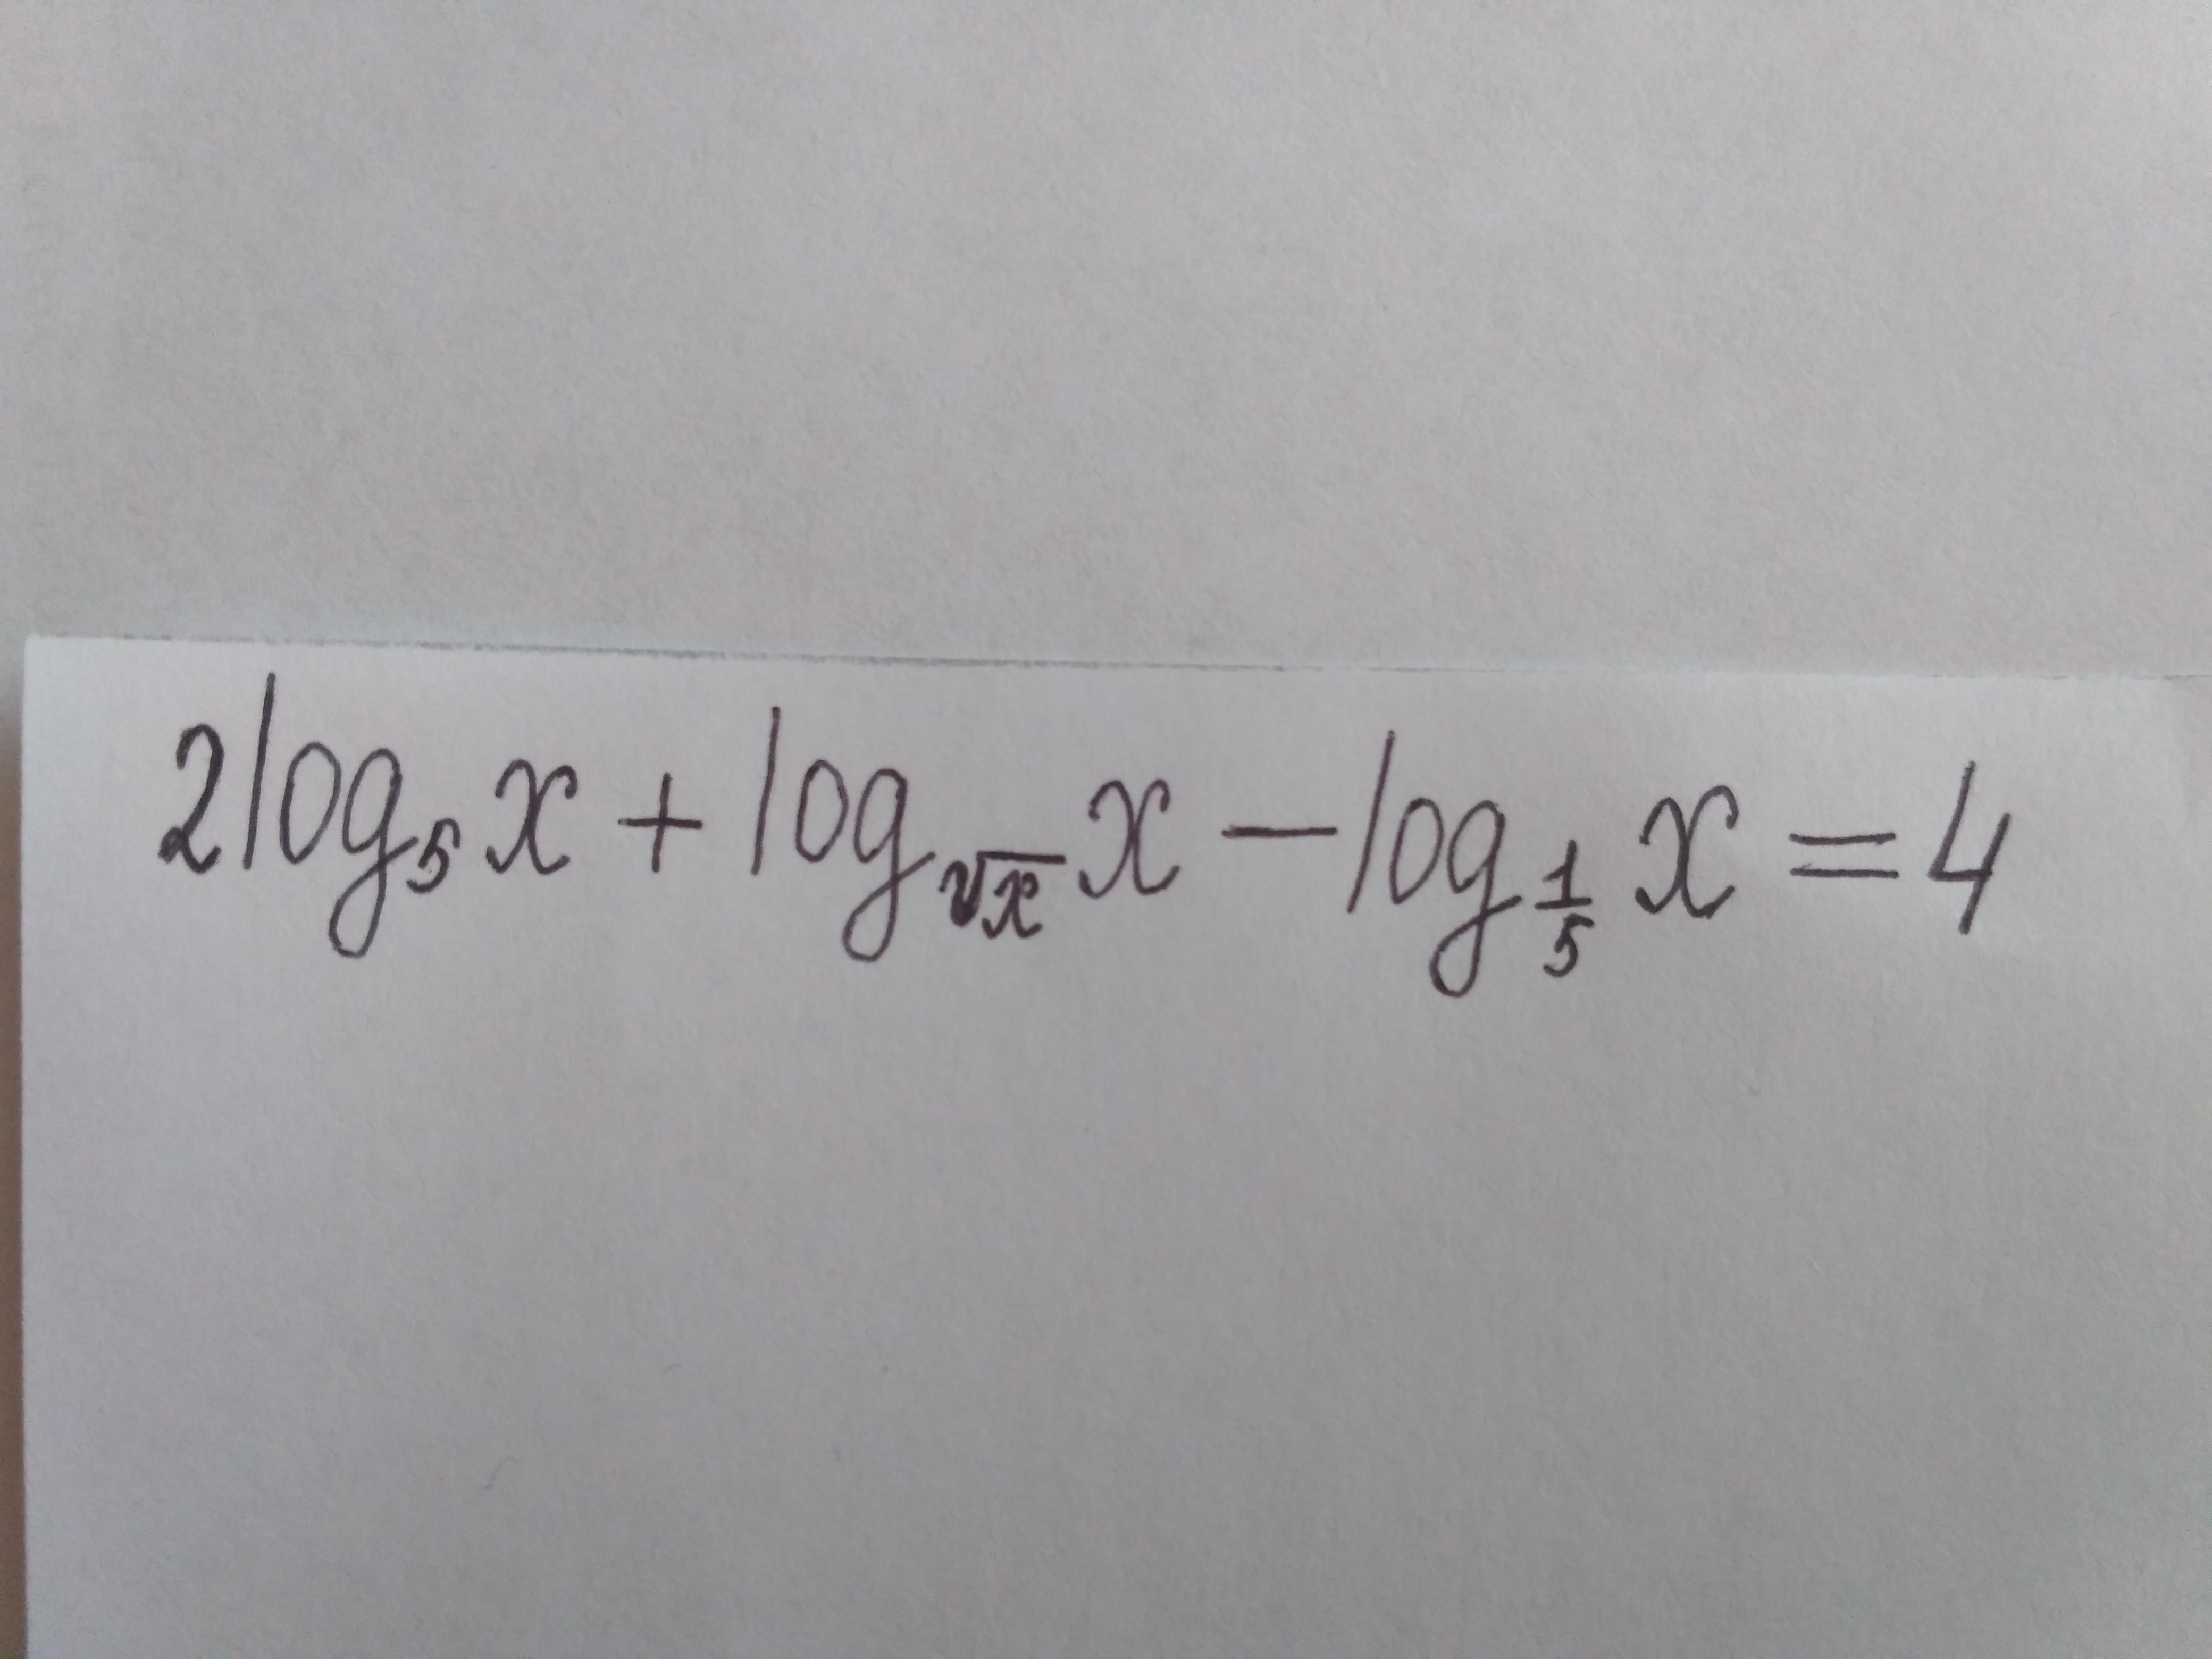 2log₅x + log_√x x − log_1/5 x = 4